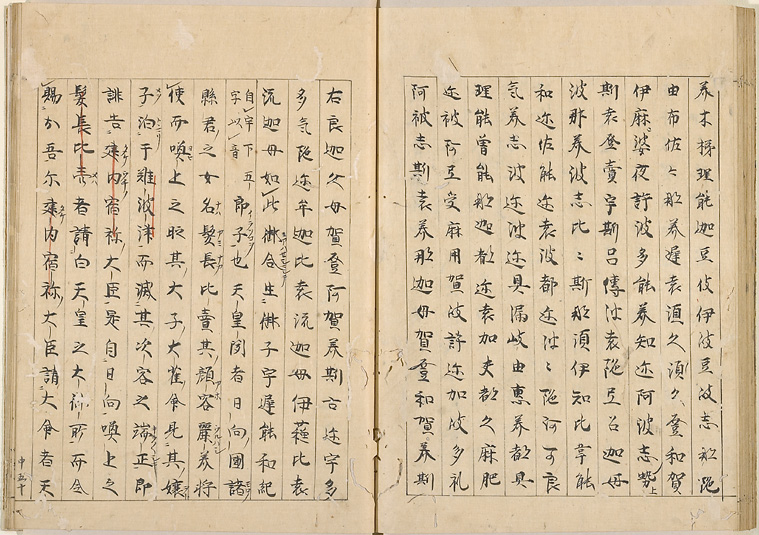 美本梯理能迦豆伎伊波豆岐志那陀
由布佐々那美遅袁湏久湏久登和賀
伊麻婆夜許波多能美知迩阿波志勢上
斯袁登賣宇斯呂傳波袁陀弖呂迦母
波那美波志比々斯那湏伊知比韋能
和迩佐能迩袁波都迩波々陀阿可良
氣美志波迩波迩具漏岐由惠美都具
理能曽能那迦都迩袁加夫都久麻肥
迩波阿弖受麻用賀岐許迩加岐多礼
阿波志斯袁美那迦母賀登和賀美斯
右良迦久母賀登阿賀美斯古迩宇多
多氣陀迩牟迦比袁流迦母伊蘓比袁
流迦母如此御合生御子宇遅能和紀
自宇下五字以音郎子也天皇聞看日向國諸
縣君之女名髪長比賣其顔容麗美将
使而喚上之時其大子大雀命見其嬢
子泊于難波津而感其姿容之端正即
誂告建内宿祢大臣是自日向喚上之
髪長比売者請白天皇之大御所而令
賜於吾尓建内宿祢大臣請大命者天
中五十